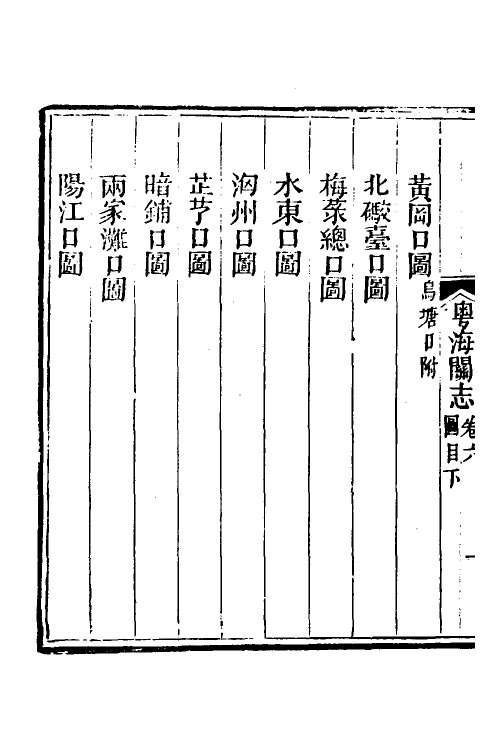 粤海關志
卷六
圖目下
一
黃岡口圖烏塘口附
北礮臺口圖
梅菉總口圖
水東口圖
洶州口圖
芷艼口圖
暗鋪口圖
兩家灘口圖
陽江口圖